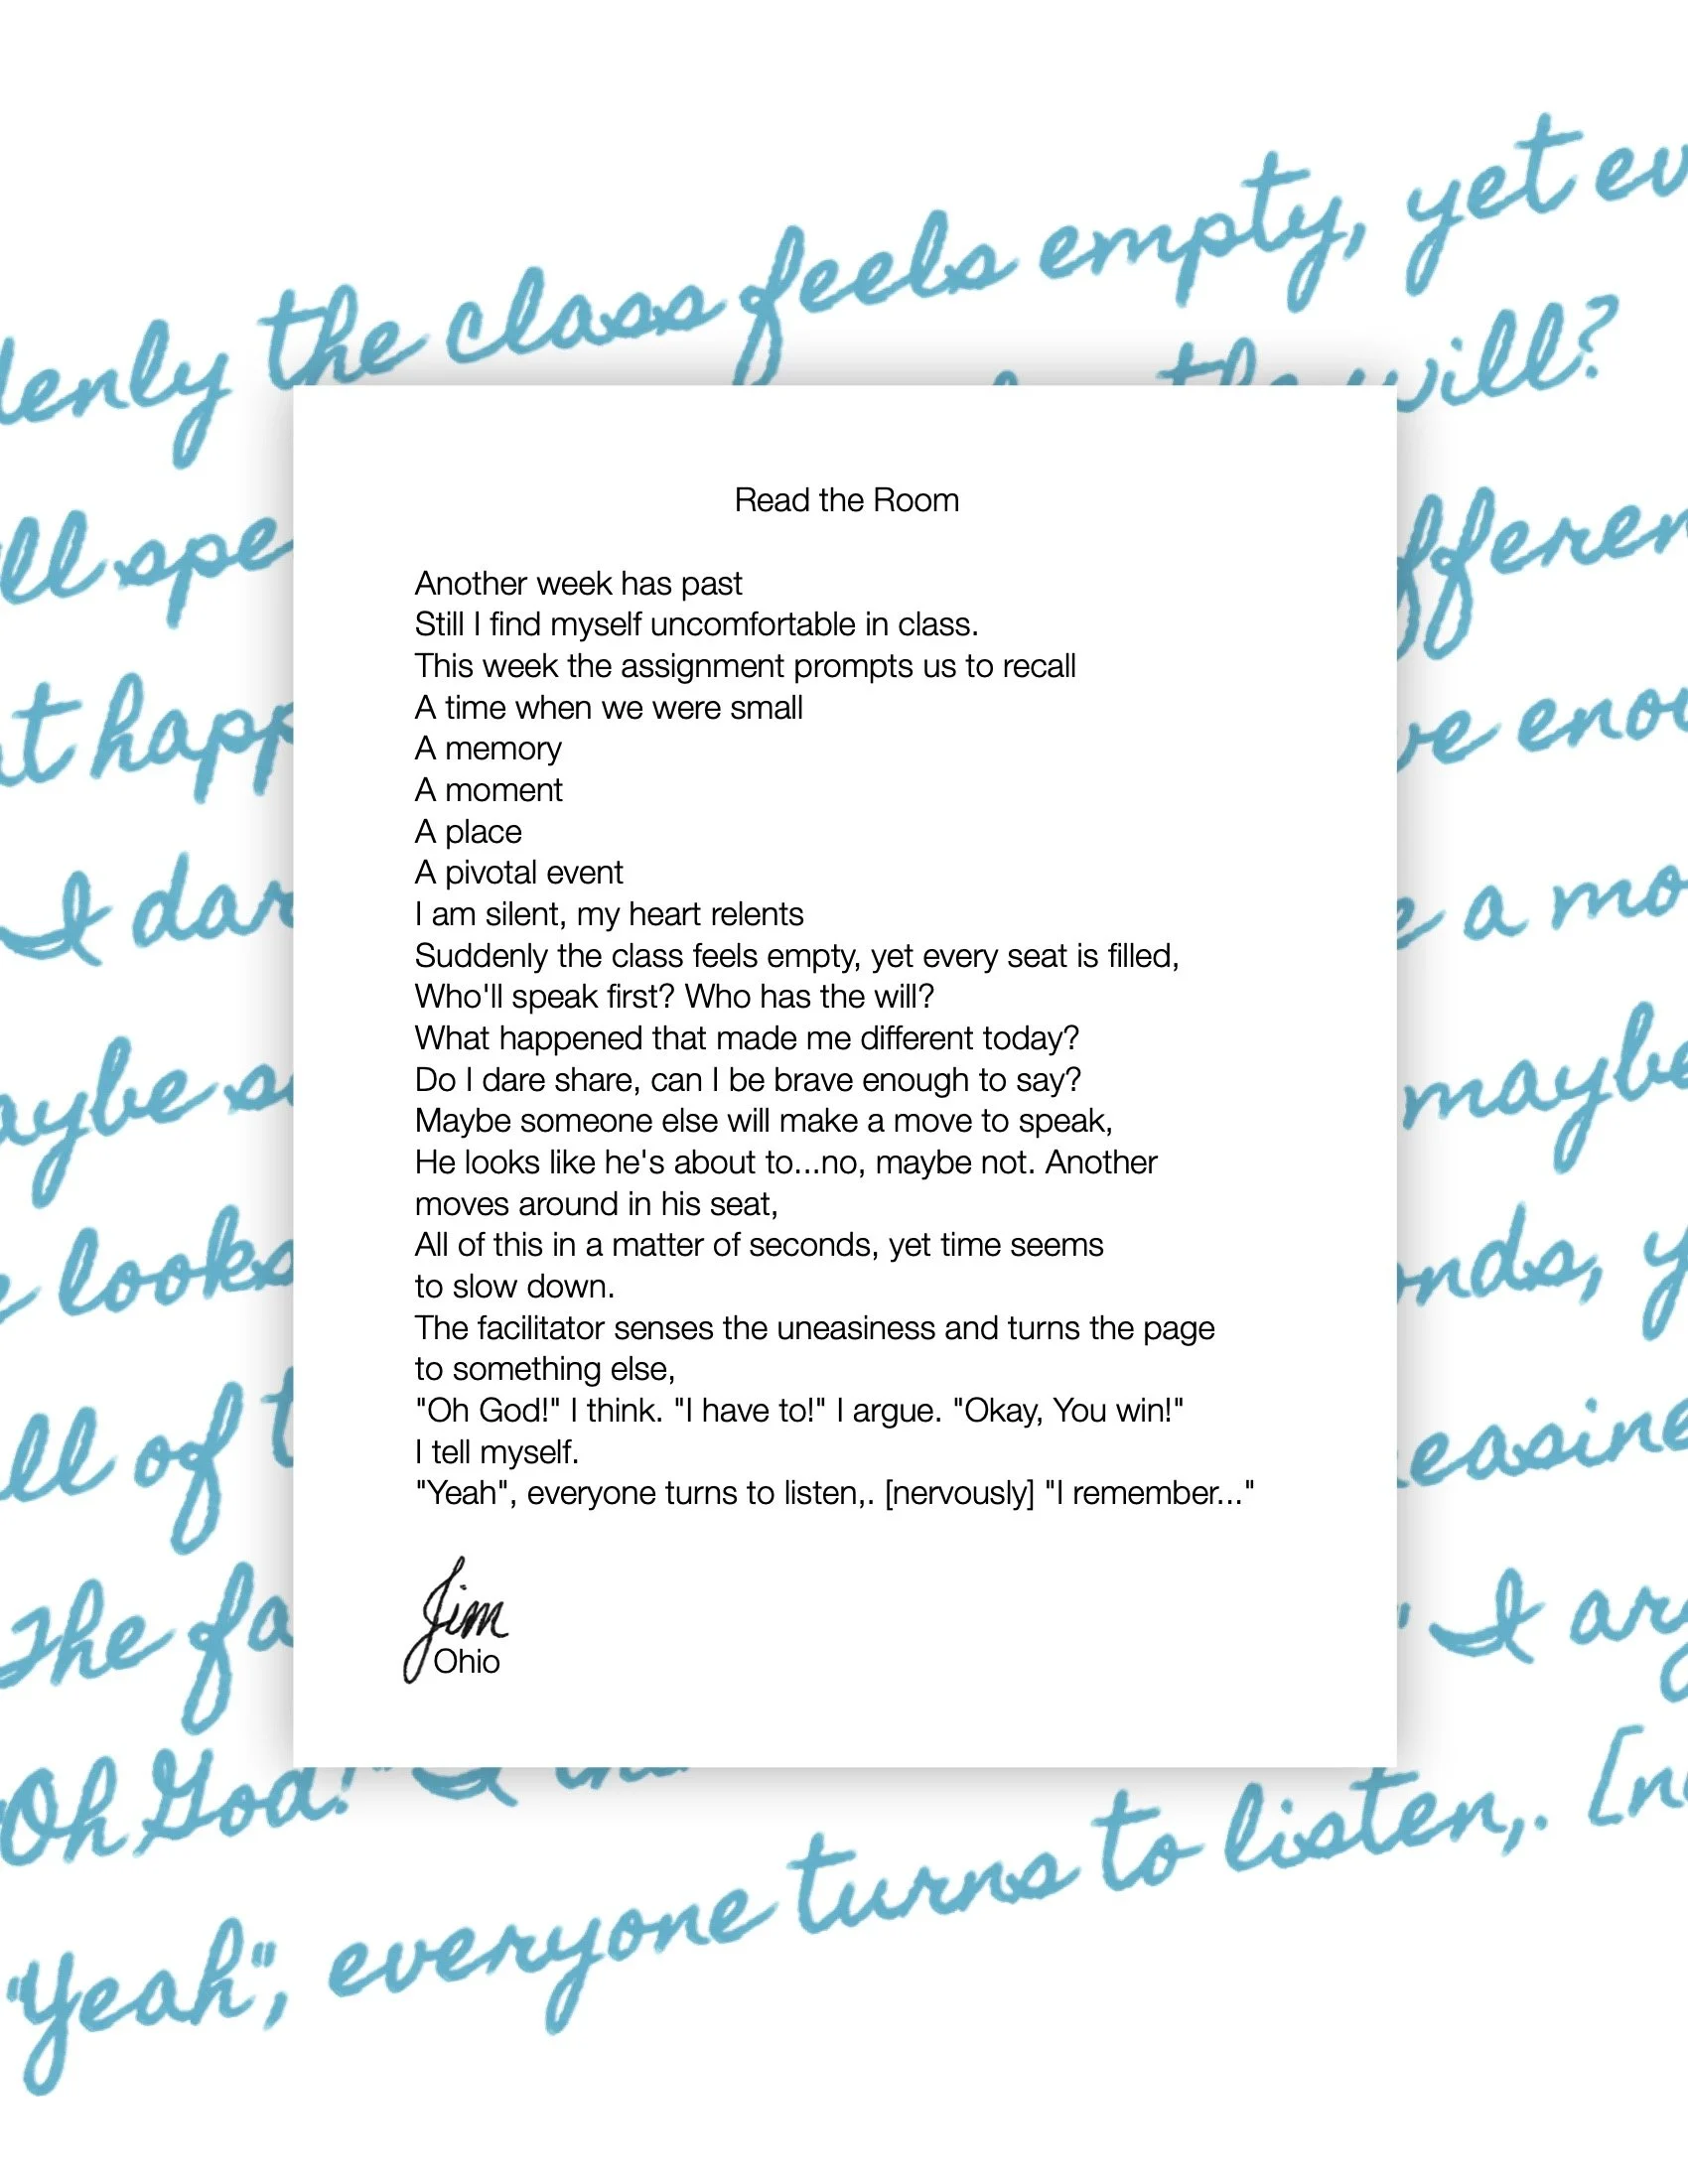 the class feels empty, yet
the will?
Read the Room
Another week has past
Still I find myself uncomfortable in class.
This week the assignment prompts us to recall
A time when we were small
A memory
A moment
A place
A pivotal event
I am silent, my heart relents
Suddenly the class feels empty, yet every seat is filled,
Who'll speak first? Who has the will?
What happened that made me different today?
Do I dare share, can I be brave enough to say?
Maybe someone else will make a move to speak,
He looks like he's about to...no, maybe not. Another
moves around in his seat,
All of this in a matter of seconds, yet time seems
to slow down.
The facilitator senses the uneasiness and turns the page
to something else,
"Oh God!" I think. "I have to!" I argue. "Okay, You win!"
I tell myself.
"Yeah", everyone turns to listen,. [nervously] "I remember..."
Jim
Ohio
"Oh God!" I
"Yeah", everyone turns to listen,.